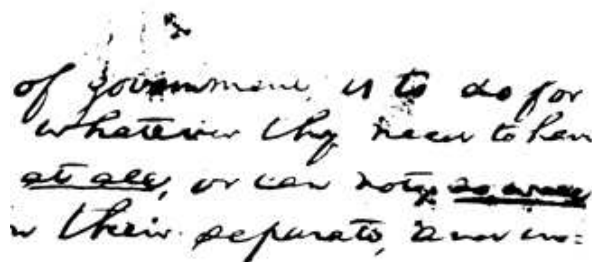 of government, is to do for
whatever they need to have
at all, or can not, so well
their separate, and in=